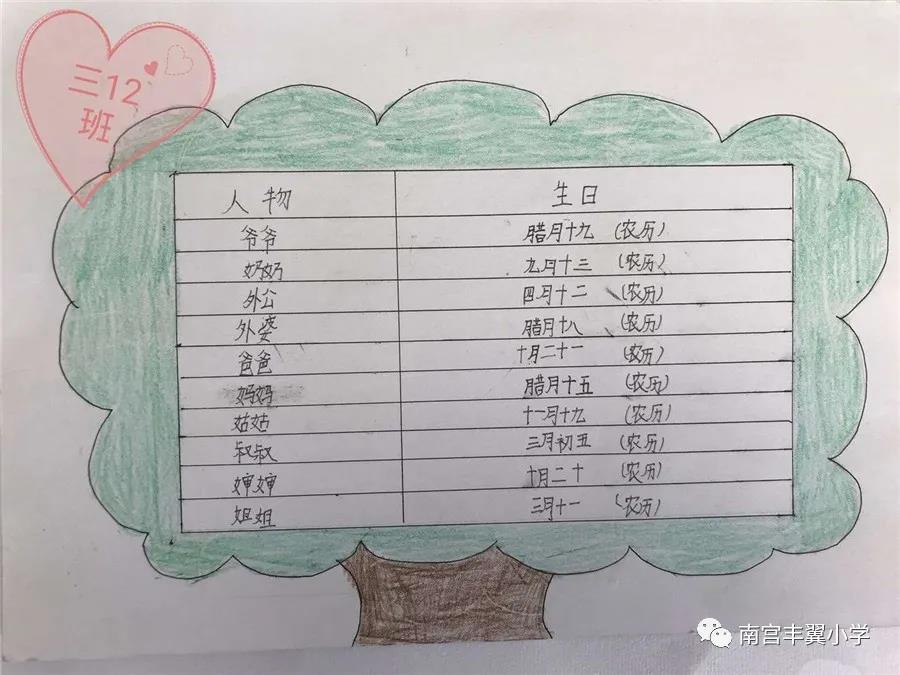 三12
班
人物 生日
爷爷 腊月十九 (农历)
奶奶 九月十三 (农历)
外公 四月十二 (农历)
外婆 腊月十八 (农历)
爸爸 十月二十一 (农历)
妈妈 腊月十五 (农历)
姑姑 十一月十九 (农历)
叔叔 三月初五 (农历)
婶婶 十月二十 (农历)
姐姐 三月十一 (农历)
南宫丰翼小学